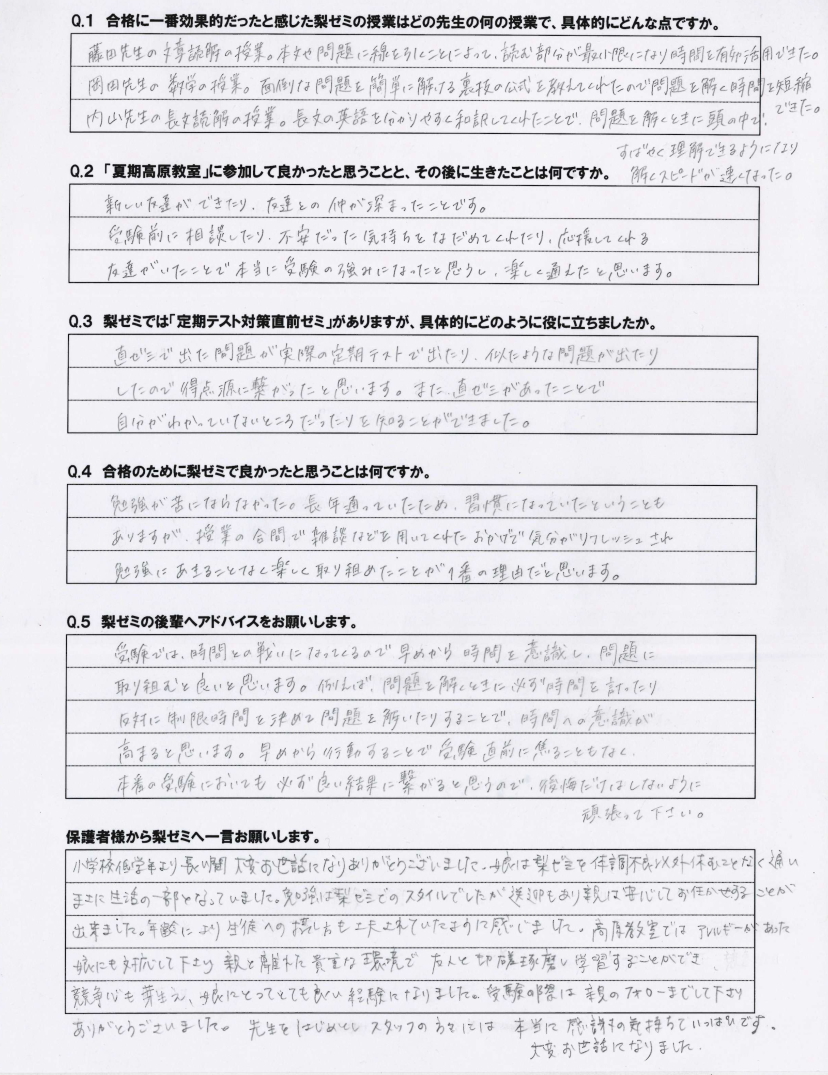 Q.1 合格に一番効果的だったと感じた梨ゼミの授業はどの先生の何の授業で、具体的にどんな点ですか。
藤田先生の文章読解の授業。本文や問題に線を引くことによって、読む部分が最小限になり時間を有効活用できた。
岡田先生の数学の授業。面倒な問題を簡単に解ける裏技の公式を教えてくれたので問題を解く時間を短縮できた。
内山先生の長文読解の授業。長文の英語を分かりやすく和訳してくれたことで、問題を解くときに頭の中で、
すばやく理解できるようになり
解くスピードが速くなった。
Q.2 「夏期高原教室」に参加して良かったと思うことと、その後に生きたことは何ですか。
新しい友達ができたり、友達との仲が深まったことです。
受験前に相談したり、不安だった気持ちをなだめてくれたり、応援してくれる
友達がいたことで本当に受験の強みになったと思うし、楽しく通えたと思います。
Q.3 梨ゼミでは「定期テスト対策直前ゼミ」がありますが、具体的にどのように役に立ちましたか。
直ゼミで出た問題が実際の定期テストで出たり、似たような問題が出たり
したので得点源に繋がったと思います。また、直ゼミがあったことで
自分がわかっていないところだったりを知ることができました。
Q.4 合格のために梨ゼミで良かったと思うことは何ですか。
勉強が苦にならなかった。長年通っていたため、習慣になっていたということも
ありますが、授業の合間で雑談などを用いてくれたおかげで気分がリフレッシュされ
勉強にあきることなく楽しく取り組めたことが1番の理由だと思います。
Q.5 梨ゼミの後輩へアドバイスをお願いします。
受験では、時間との戦いになってくるので早めから時間を意識し、問題に
取り組むと良いと思います。例えば、問題を解くときに必ず時間を計ったり
反対に制限時間を決めて問題を解いたりすることで、時間への意識が
高まると思います。早めから行動することで受験直前に焦ることもなく、
本番の受験においても必ず良い結果に繋がると思うので、後悔だけはしないように
頑張って下さい。
保護者様から梨ゼミへ一言お願いします。
小学校低学年より長い間大変お世話になりありがとうございました。娘は梨ゼミを体調不良以外休むことなく通い
まさに生活の一部となっていました。勉強は梨ゼミでのスタイルでしたが送迎もあり親は安心してお任せすることが
出来ました。年齢により生徒への接し方も工夫されていたように感じました。高原教室ではアレルギーがあった
娘にも対応して下さり親と離れた貴重な環境で友人と切磋琢磨し学習することができ、
競争心も芽生え、娘にとってとても良い経験になりました。受験の際は親のフォローまでして下さり
ありがとうございました。先生をはじめとしスタッフの方々には本当に感謝の気持ちでいっぱいです。
大変お世話になりました。